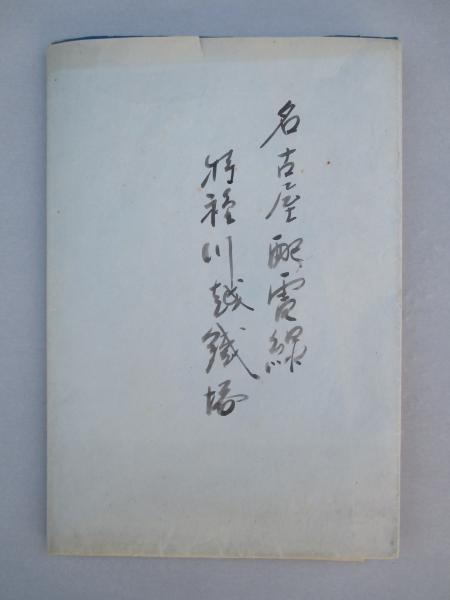 名古屋配電線
特種川越鐵塔